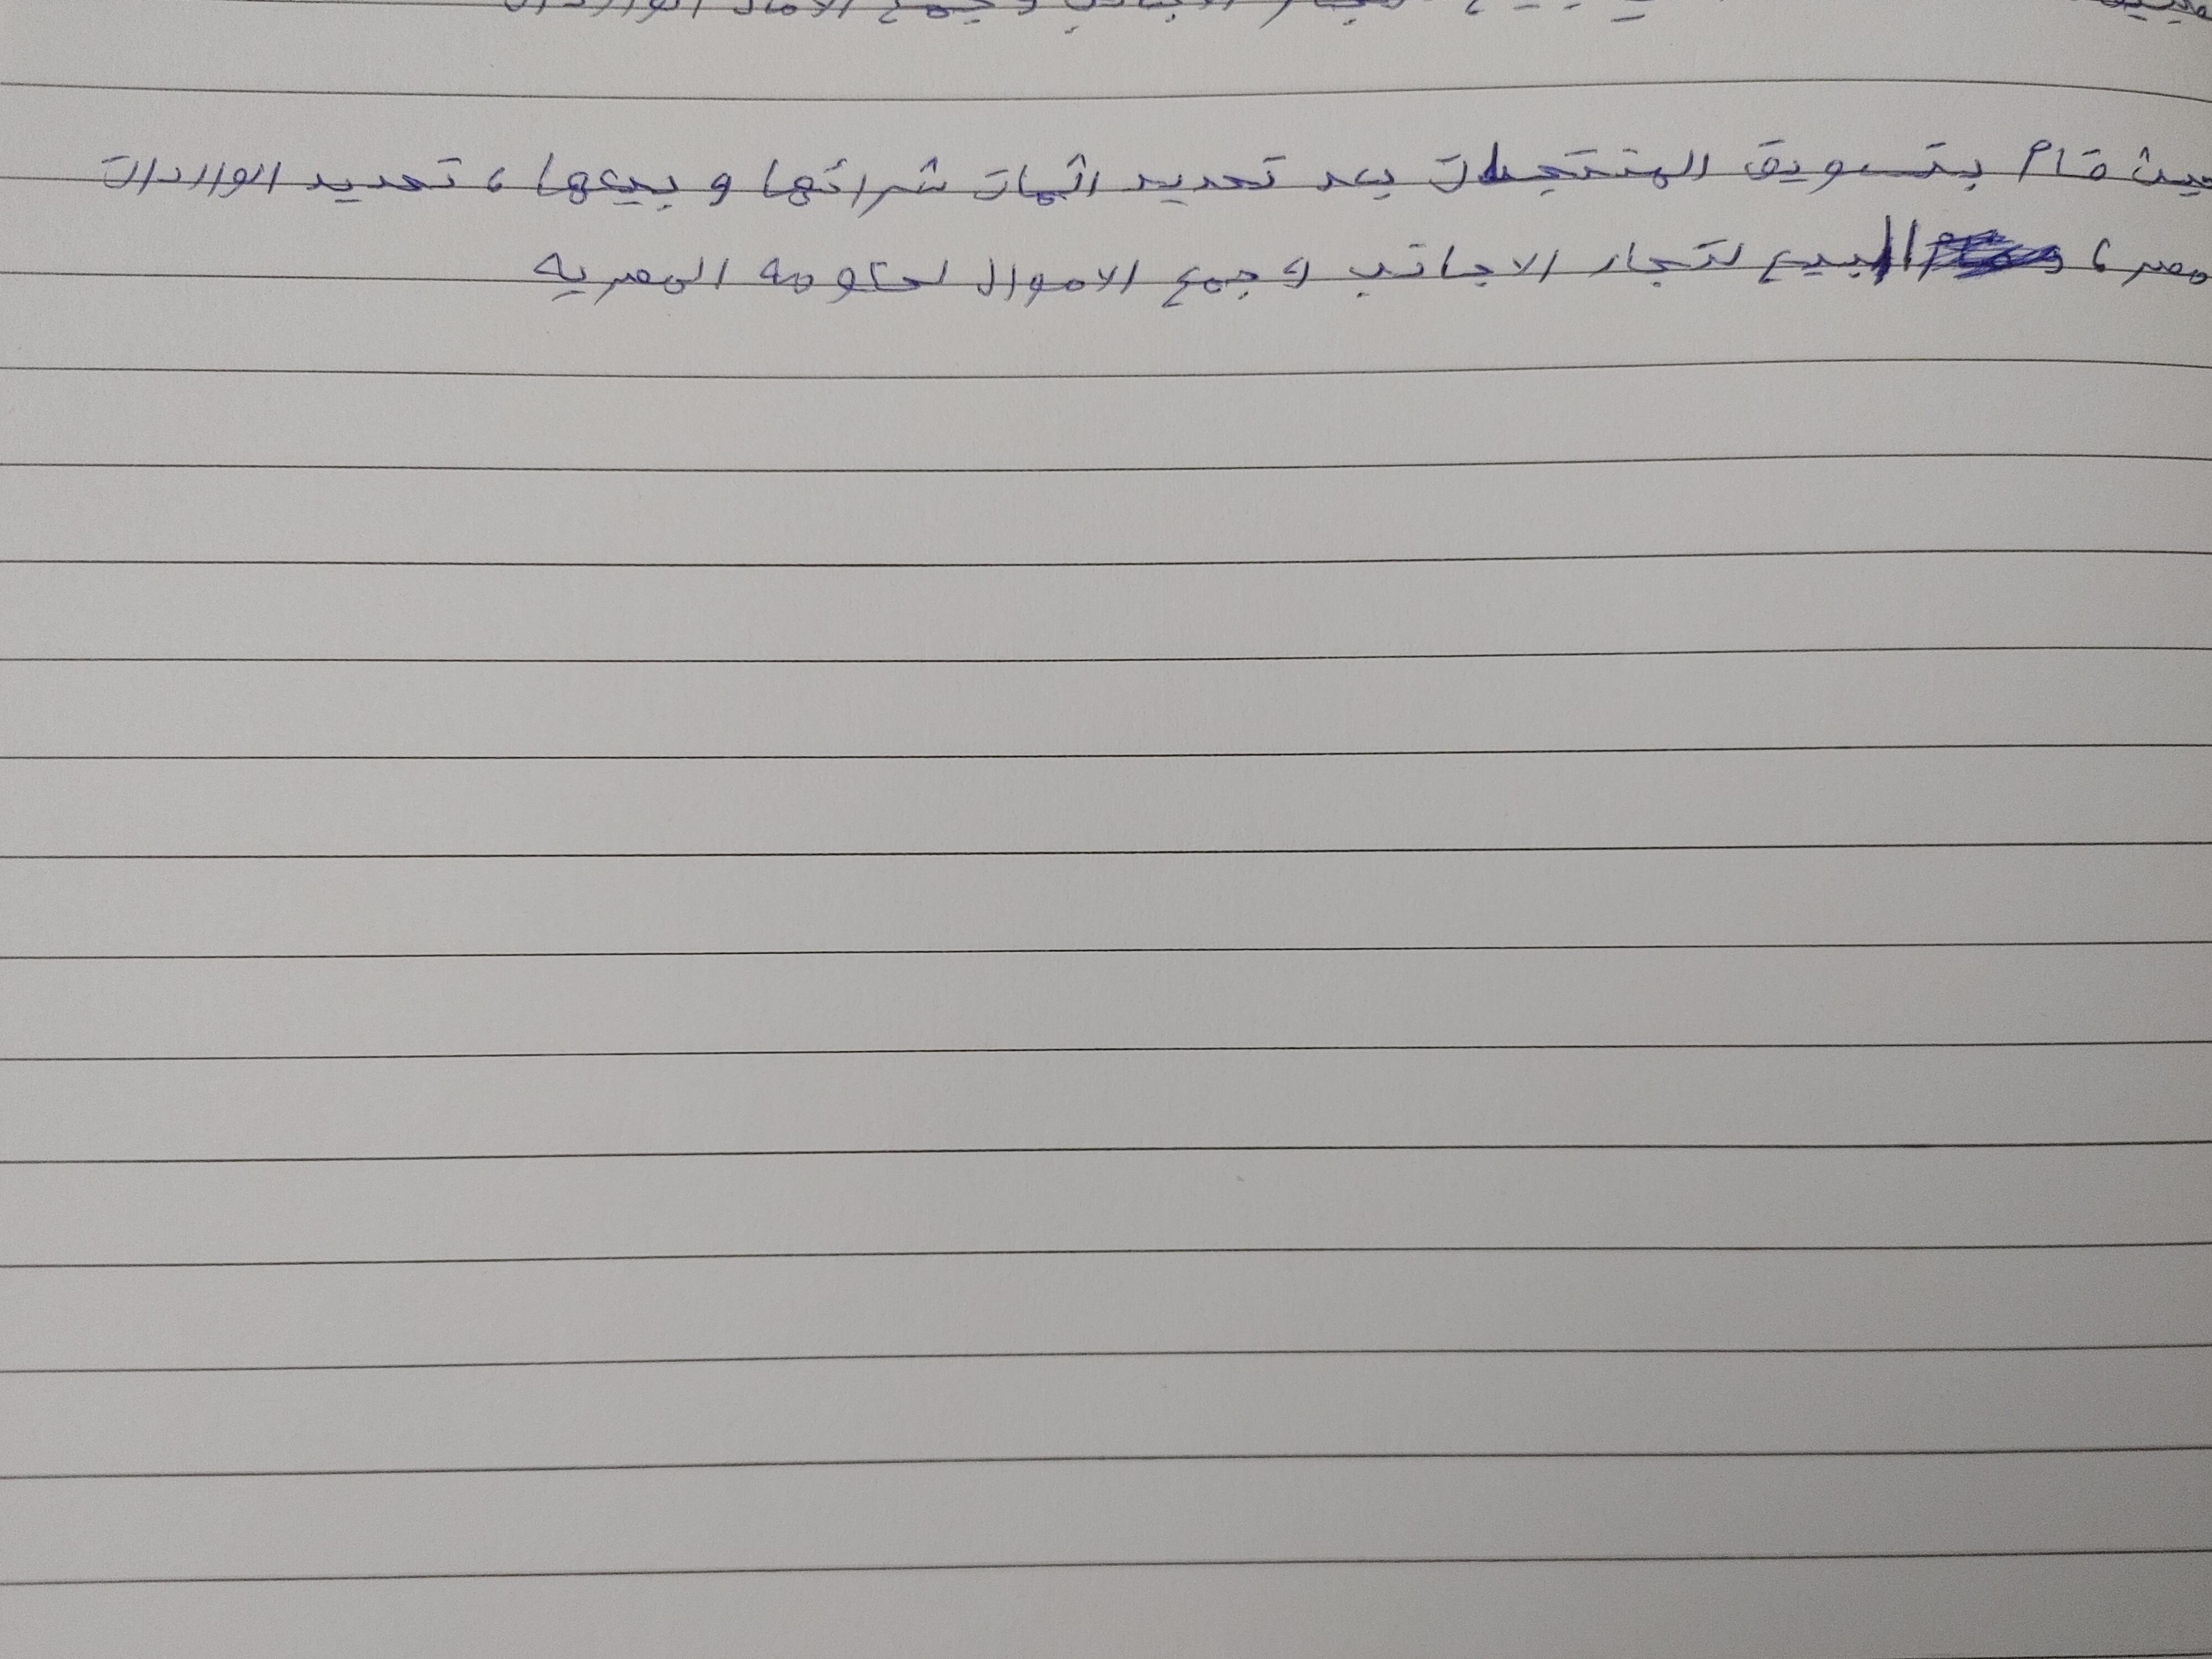 حيث قام بتسويق المنتجات بعد تحديد اثمان شرائها و بيعها ، تحديد الواردات
مصر ، البيع لتجار الاجانب و جمع الاموال لحكومه المصريه